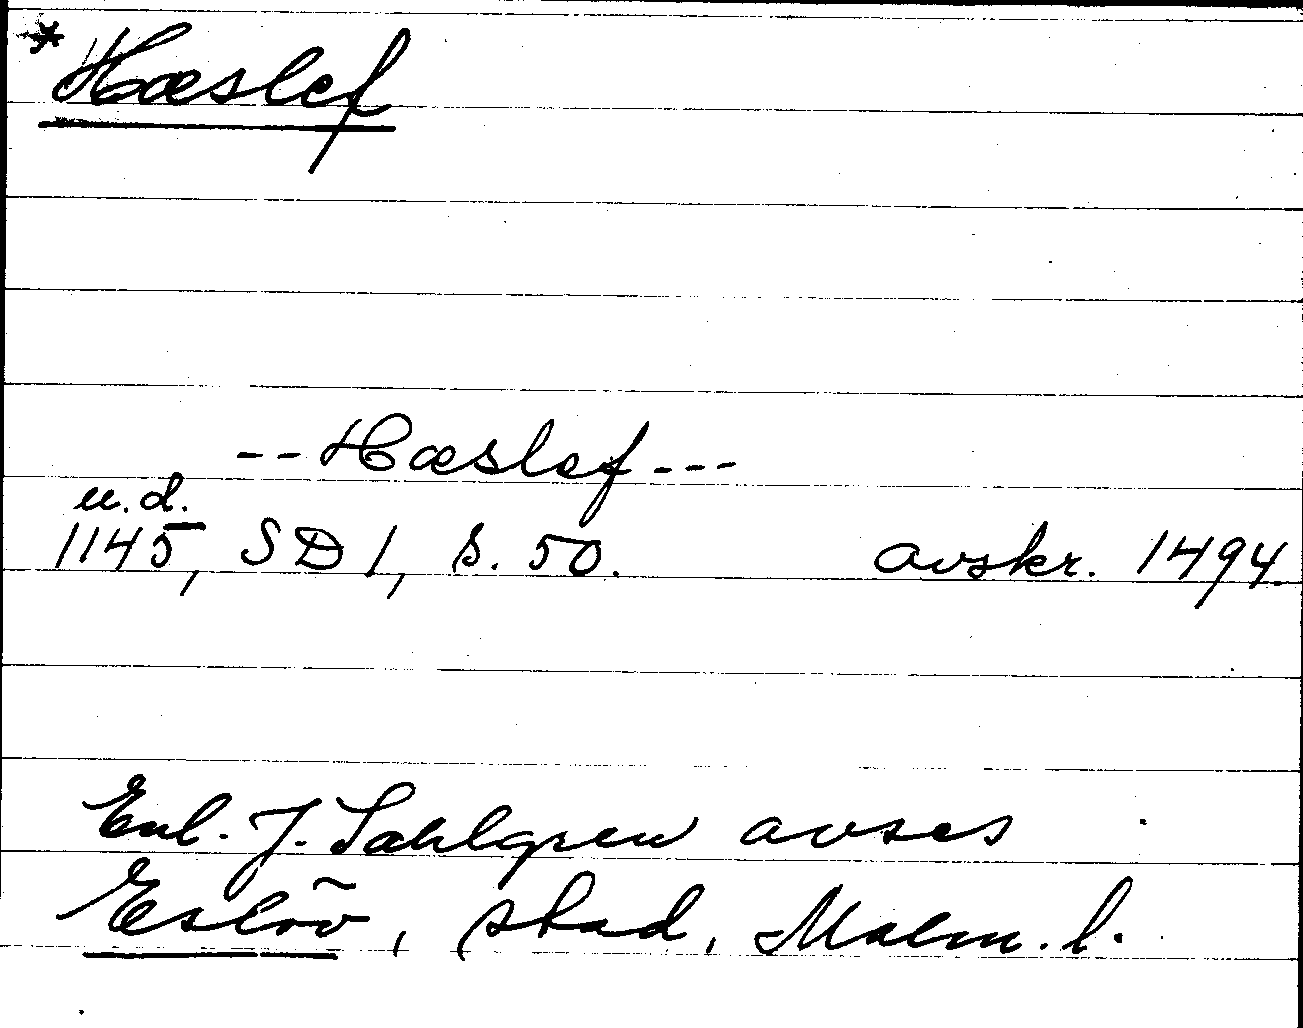 *Hæslef
--Hæslef---
u.d.
1145, SD 1, s. 50. avskr. 1494.
Enl. J. Sahlgren avses
Eslöv, stad, Malm. l.